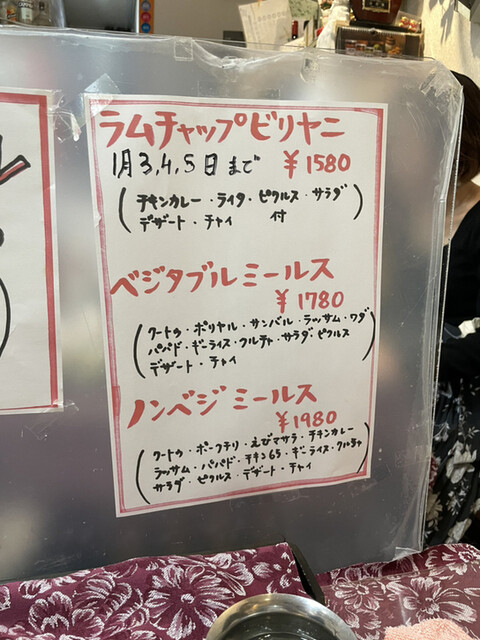 ラムチャップビリヤニ
1月3,4,5日まで ￥1580
(チキンカレー・ライタ・ピクルス・サラダ
デザート・チャイ 付)
ベジタブルミールス
￥1780
(クートゥ・ポリヤル・サンバル・ラッサム・ワダ
パパド・ギーライス・クルチャ・サラダ・ピクルス
デザート・チャイ)
ノンベジミールス
￥1980
(クートゥ・ポークチリ・えびマサラ・チキンカレー
ラッサム・パパド・チキン65・ギーライス・クルチャ
サラダ・ピクルス・デザート・チャイ)